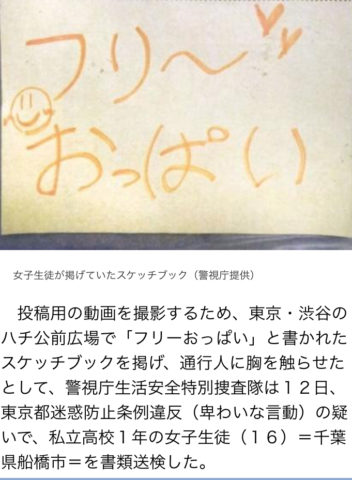 フリ～
おっぱい
女子生徒が掲げていたスケッチブック（警視庁提供）
投稿用の動画を撮影するため、東京・渋谷の
ハチ公前広場で「フリーおっぱい」と書かれた
スケッチブックを掲げ、通行人に胸を触らせた
として、警視庁生活安全特別捜査隊は１２日、
東京都迷惑防止条例違反（卑わいな言動）の疑
いで、私立高校１年の女子生徒（１６）＝千葉
県船橋市＝を書類送検した。